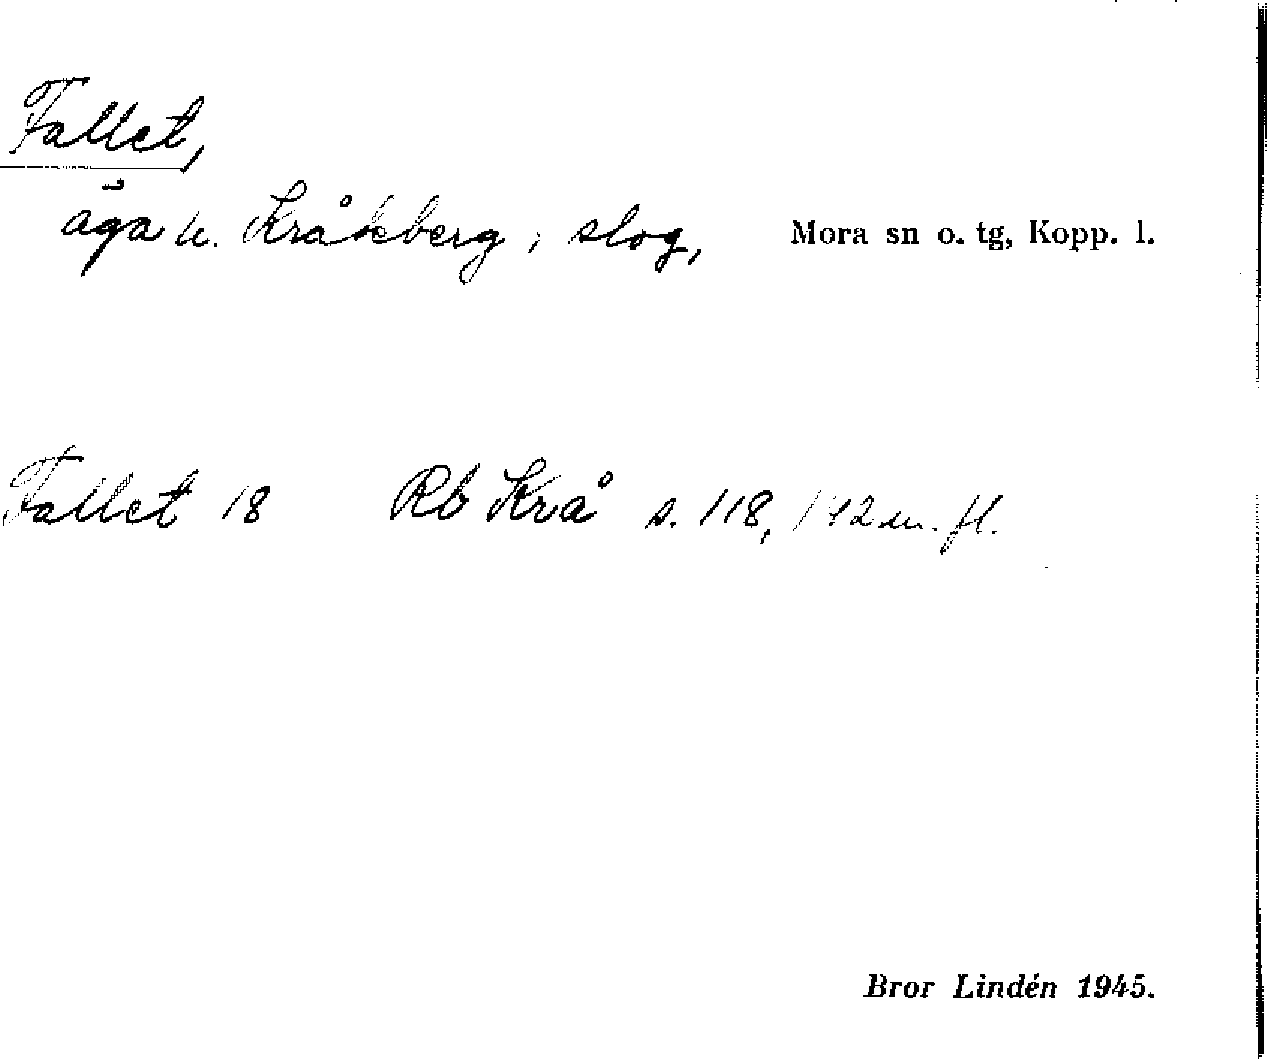 Fallet,
äga u. Kråkberg, slog, Mora sn o. tg, Kopp. l.
Fallet 18 Rb Krå s. 118, 142 m. fl.
Bror Lindén 1945.